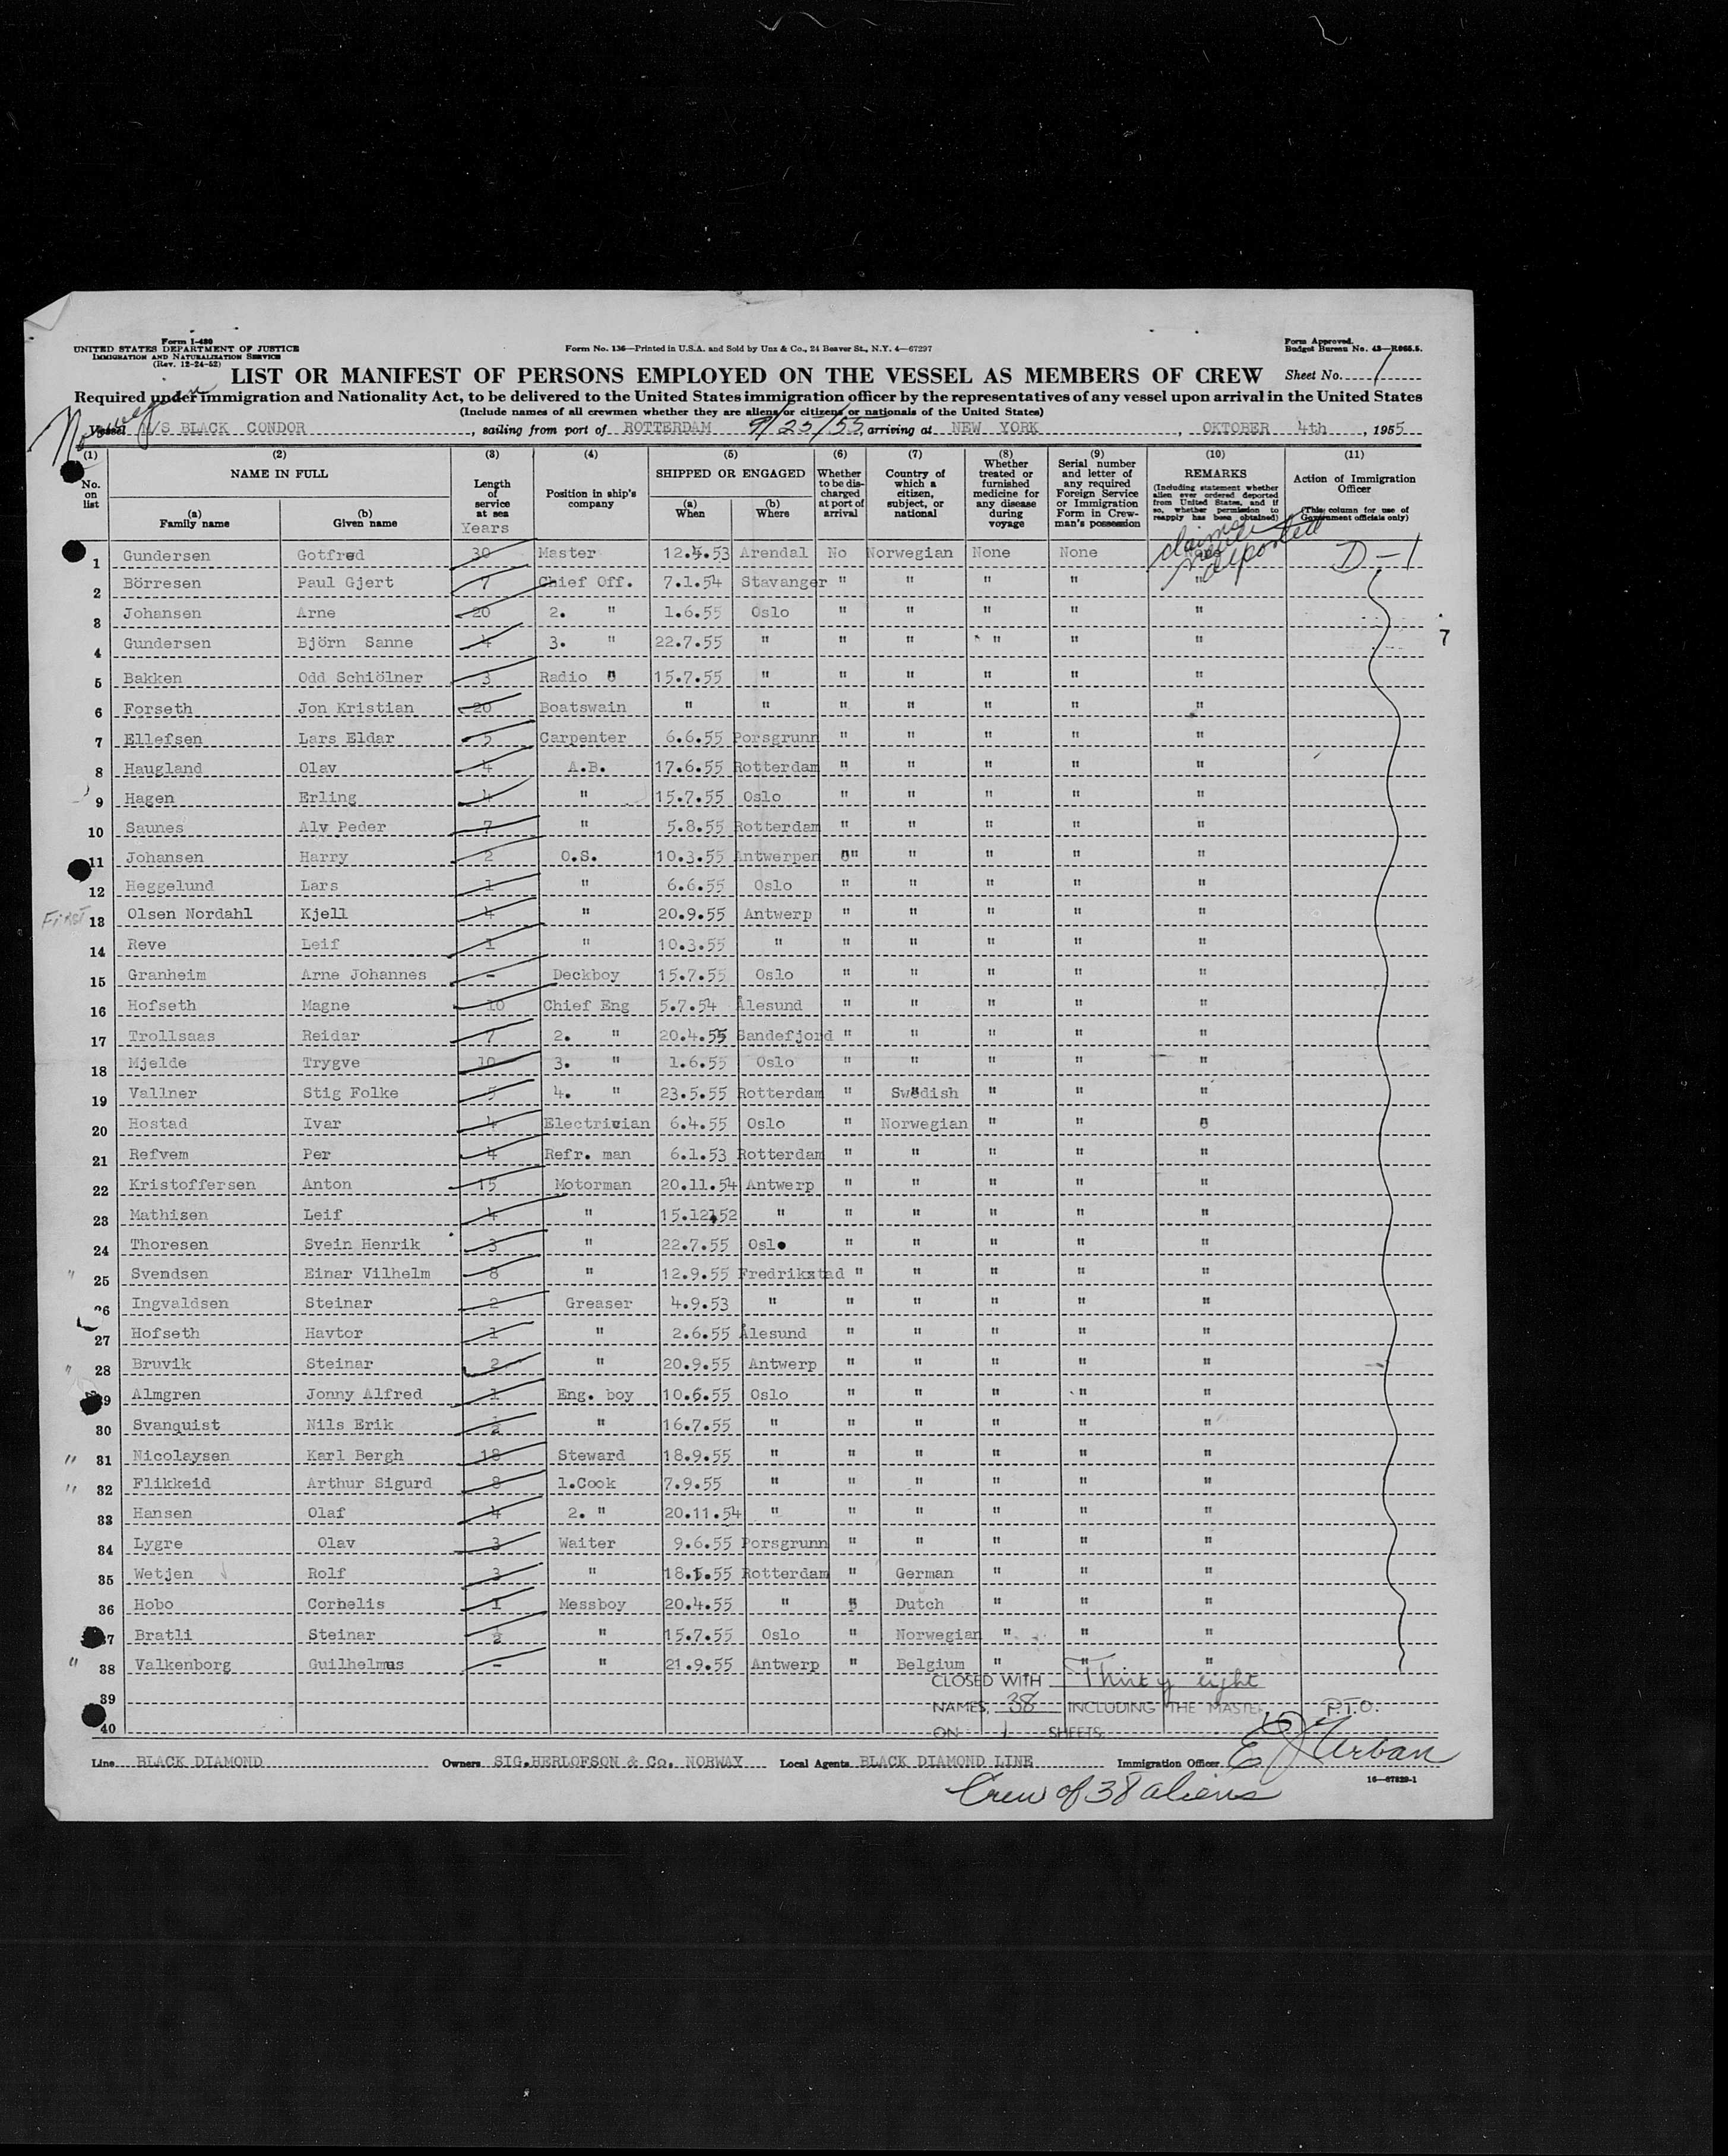 Form I-480
UNITED STATES DEPARTMENT OF JUSTICE
IMMIGRATION AND NATURALIZATION SERVICE
(Rev. 12-24-52)
Form No. 136—Printed in U.S.A. and Sold by Unz & Co., 24 Beaver St., N.Y. 4—67297
Form Approved.
Budget Bureau No. 43—R065.5.
LIST OR MANIFEST OF PERSONS EMPLOYED ON THE VESSEL AS MEMBERS OF CREW Sheet No. 1
Required under Immigration and Nationality Act, to be delivered to the United States immigration officer by the representatives of any vessel upon arrival in the United States
(Include names of all crewmen whether they are aliens or citizens or nationals of the United States)
Norwegian
Vessel M/S BLACK CONDOR, sailing from port of ROTTERDAM 9/25/55, arriving at NEW YORK, OKTOBER 4th, 1955
(1) No. on list (2) NAME IN FULL (a) Family name (b) Given name (3) Length of service at sea Years (4) Position in ship's company (5) SHIPPED OR ENGAGED (a) When (b) Where (6) Whether to be discharged at port of arrival (7) Country of which a citizen, subject, or national (8) Whether treated or furnished medicine for any disease during voyage (9) Serial number and letter of any required Foreign Service or Immigration Form in Crewman's possession (10) REMARKS (Including statement whether alien ever ordered deported from United States, and if so, whether permission to reapply has been obtained) (11) Action of Immigration Officer (This column for use of Government officials only)
claims never deported
1 Gundersen Gotfred 30 Master 12.4.53 Arendal No Norwegian None None D-1
2 Börresen Paul Gjert 7 Chief Off. 7.1.54 Stavanger " " " " "
3 Johansen Arne 20 2. " 1.6.55 Oslo " " " " "
4 Gundersen Björn Sanne 4 3. " 22.7.55 " " " " " "
5 Bakken Odd Schiölner 3 Radio " 15.7.55 " " " " " "
6 Forseth Jon Kristian 20 Boatswain " " " " " " "
7 Ellefsen Lars Eldar 5 Carpenter 6.6.55 Porsgrunn " " " " "
8 Haugland Olav 4 A.B. 17.6.55 Rotterdam " " " " "
9 Hagen Erling 4 " 15.7.55 Oslo " " " " "
10 Saunes Alv Peder 7 " 5.8.55 Rotterdam " " " " "
11 Johansen Harry 2 O.S. 10.3.55 Antwerpen " " " " "
12 Heggelund Lars 1 " 6.6.55 Oslo " " " " "
First 13 Olsen Nordahl Kjell 4 " 20.9.55 Antwerp " " " " "
14 Reve Leif 1 " 10.3.55 " " " " " "
15 Granheim Arne Johannes - Deckboy 15.7.55 Oslo " " " " "
16 Hofseth Magne 10 Chief Eng 5.7.54 Ålesund " " " " "
17 Trollsaas Reidar 7 2. " 20.4.55 Sandefjord " " " " "
18 Mjelde Trygve 10 3. " 1.6.55 Oslo " " " " "
19 Vallner Stig Folke 5 4. " 23.5.55 Rotterdam " Swedish " " "
20 Hostad Ivar 4 Electrician 6.4.55 Oslo " Norwegian " " "
21 Refvem Per 4 Refr. man 6.1.53 Rotterdam " " " " "
22 Kristoffersen Anton 15 Motorman 20.11.54 Antwerp " " " " "
23 Mathisen Leif 4 " 15.12.52 " " " " " "
24 Thoresen Svein Henrik 3 " 22.7.55 Oslo " " " " "
" 25 Svendsen Einar Vilhelm 8 " 12.9.55 Fredrikstad " " " " "
26 Ingvaldsen Steinar 2 Greaser 4.9.53 " " " " " "
27 Hofseth Havtor 1 " 2.6.55 Ålesund " " " " "
" 28 Bruvik Steinar 2 " 20.9.55 Antwerp " " " " "
29 Almgren Jonny Alfred 1 Eng. boy 10.6.55 Oslo " " " " "
30 Svanquist Nils Erik ½ " 16.7.55 " " " " " "
" 31 Nicolaysen Karl Bergh 18 Steward 18.9.55 " " " " " "
" 32 Flikkeid Arthur Sigurd 8 1.Cook 7.9.55 " " " " " "
33 Hansen Olaf 4 2. " 20.11.54 " " " " " "
34 Lygre Olav 3 Waiter 9.6.55 Porsgrunn " " " " "
35 Wetjen Rolf 3 " 18.5.55 Rotterdam " German " " "
36 Hobo Cornelis 1 Messboy 20.4.55 " " Dutch " " "
37 Bratli Steinar ½ " 15.7.55 Oslo " Norwegian " " "
" 38 Valkenborg Guilhelmus - " 21.9.55 Antwerp " Belgium " " "
39
40
CLOSED WITH Thirty eight
NAMES, 38 INCLUDING THE MASTER, P.T.O.
ON 1 SHEETS.
Line BLACK DIAMOND Owners SIG.HERLOFSON & Co, NORWAY Local Agents BLACK DIAMOND LINE Immigration Officer E J Urban
16—67829-1
Crew of 38 aliens
7